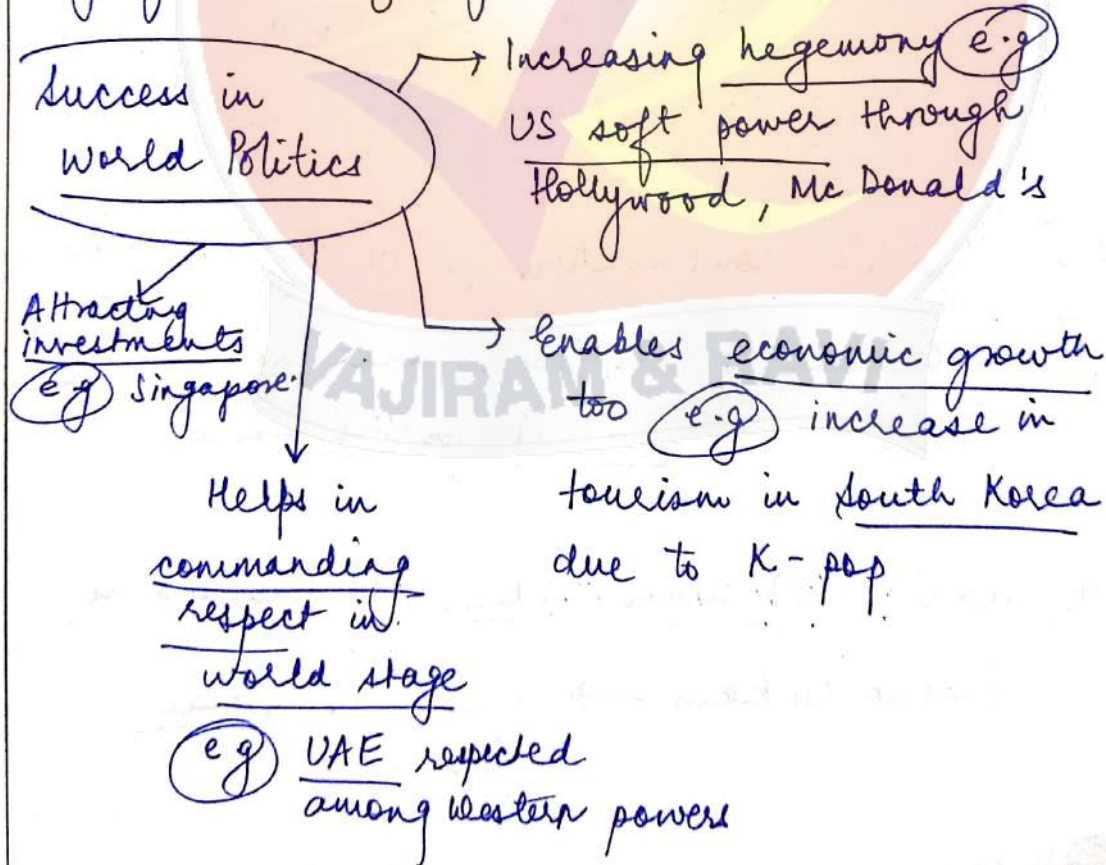 Success in
World Politics
→ Increasing hegemony e.g
US soft power through
Hollywood, Mc Donald's
Attracting
investments
e g Singapore.
→ Enables economic growth
too e.g increase in
tourism in South Korea
due to K-pop
Helps in
commanding
respect in
world stage
e g UAE respected
among Western powers
VAJIRAM & RAVI